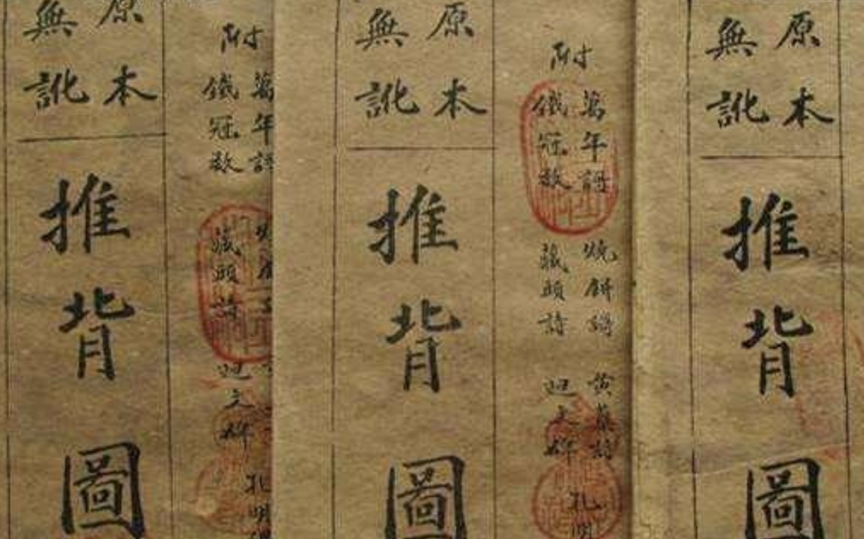 原本
無訛
推背圖
附
鐵冠數
藏頭詩
迴文碑
孔明
原本
無訛
推背圖
附
萬年謌
鐵冠數
燒餅謌
藏頭詩
黃蘗詩
迴文碑
孔明
原本
無訛
推背圖